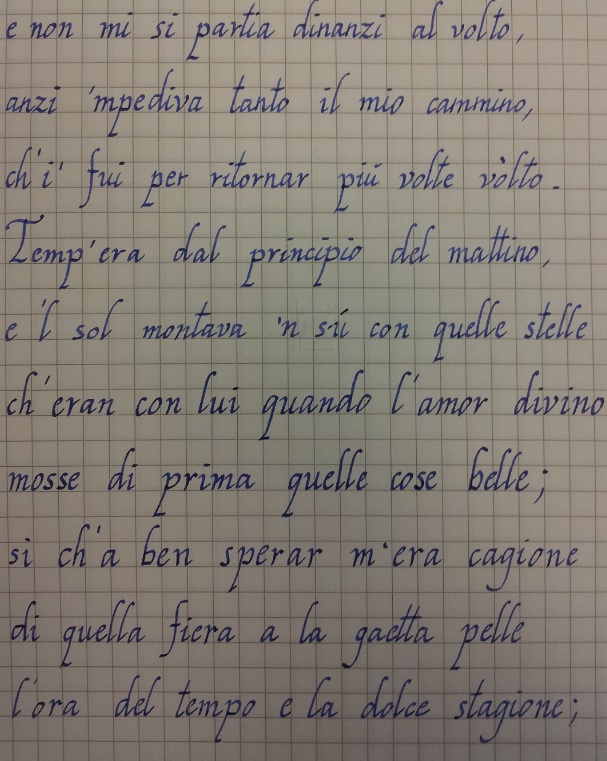 e non mi si partia dinanzi al volto,
anzi 'mpediva tanto il mio cammino,
ch'i' fui per ritornar più volte vòlto.
Temp'era dal principio del mattino,
e 'l sol montava 'n sú con quelle stelle
ch'eran con lui quando l'amor divino
mosse di prima quelle cose belle;
si ch'a ben sperar m'era cagione
di quella fiera a la gaetta pelle
l'ora del tempo e la dolce stagione;